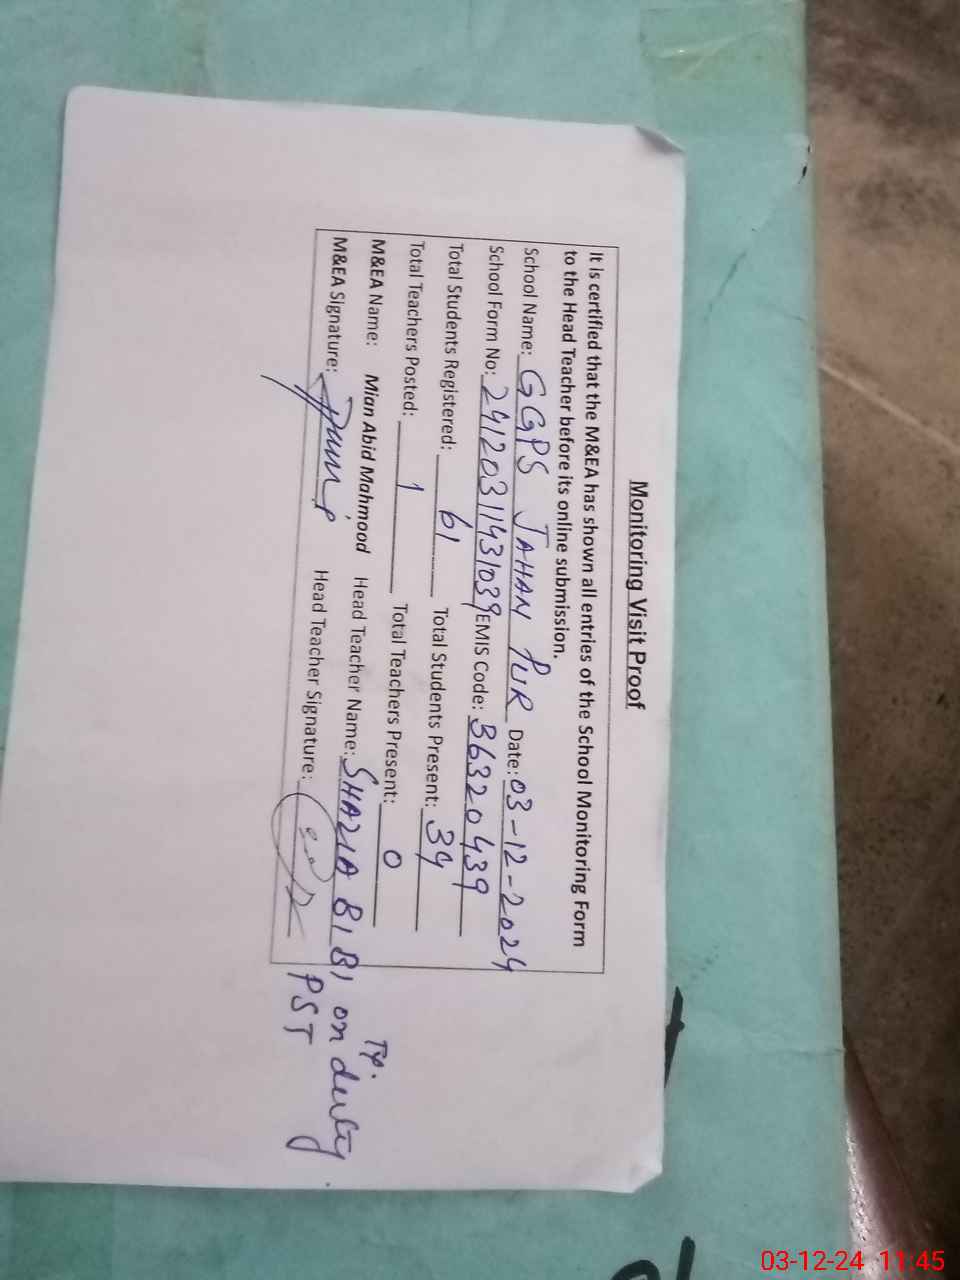 Monitoring Visit Proof
It is certified that the M&EA has shown all entries of the School Monitoring Form
to the Head Teacher before its online submission.
School Name: GGPS JAHAN PUR Date: 03-12-2024
School Form No: 24120311431039 EMIS Code: 36320439
Total Students Registered: 61 Total Students Present: 34
Total Teachers Posted: 1 Total Teachers Present: 0
M&EA Name: Mian Abid Mahmood Head Teacher Name: SHAZIA BIBI on Ty. duty
M&EA Signature: Head Teacher Signature: PST
03-12-24 11:45